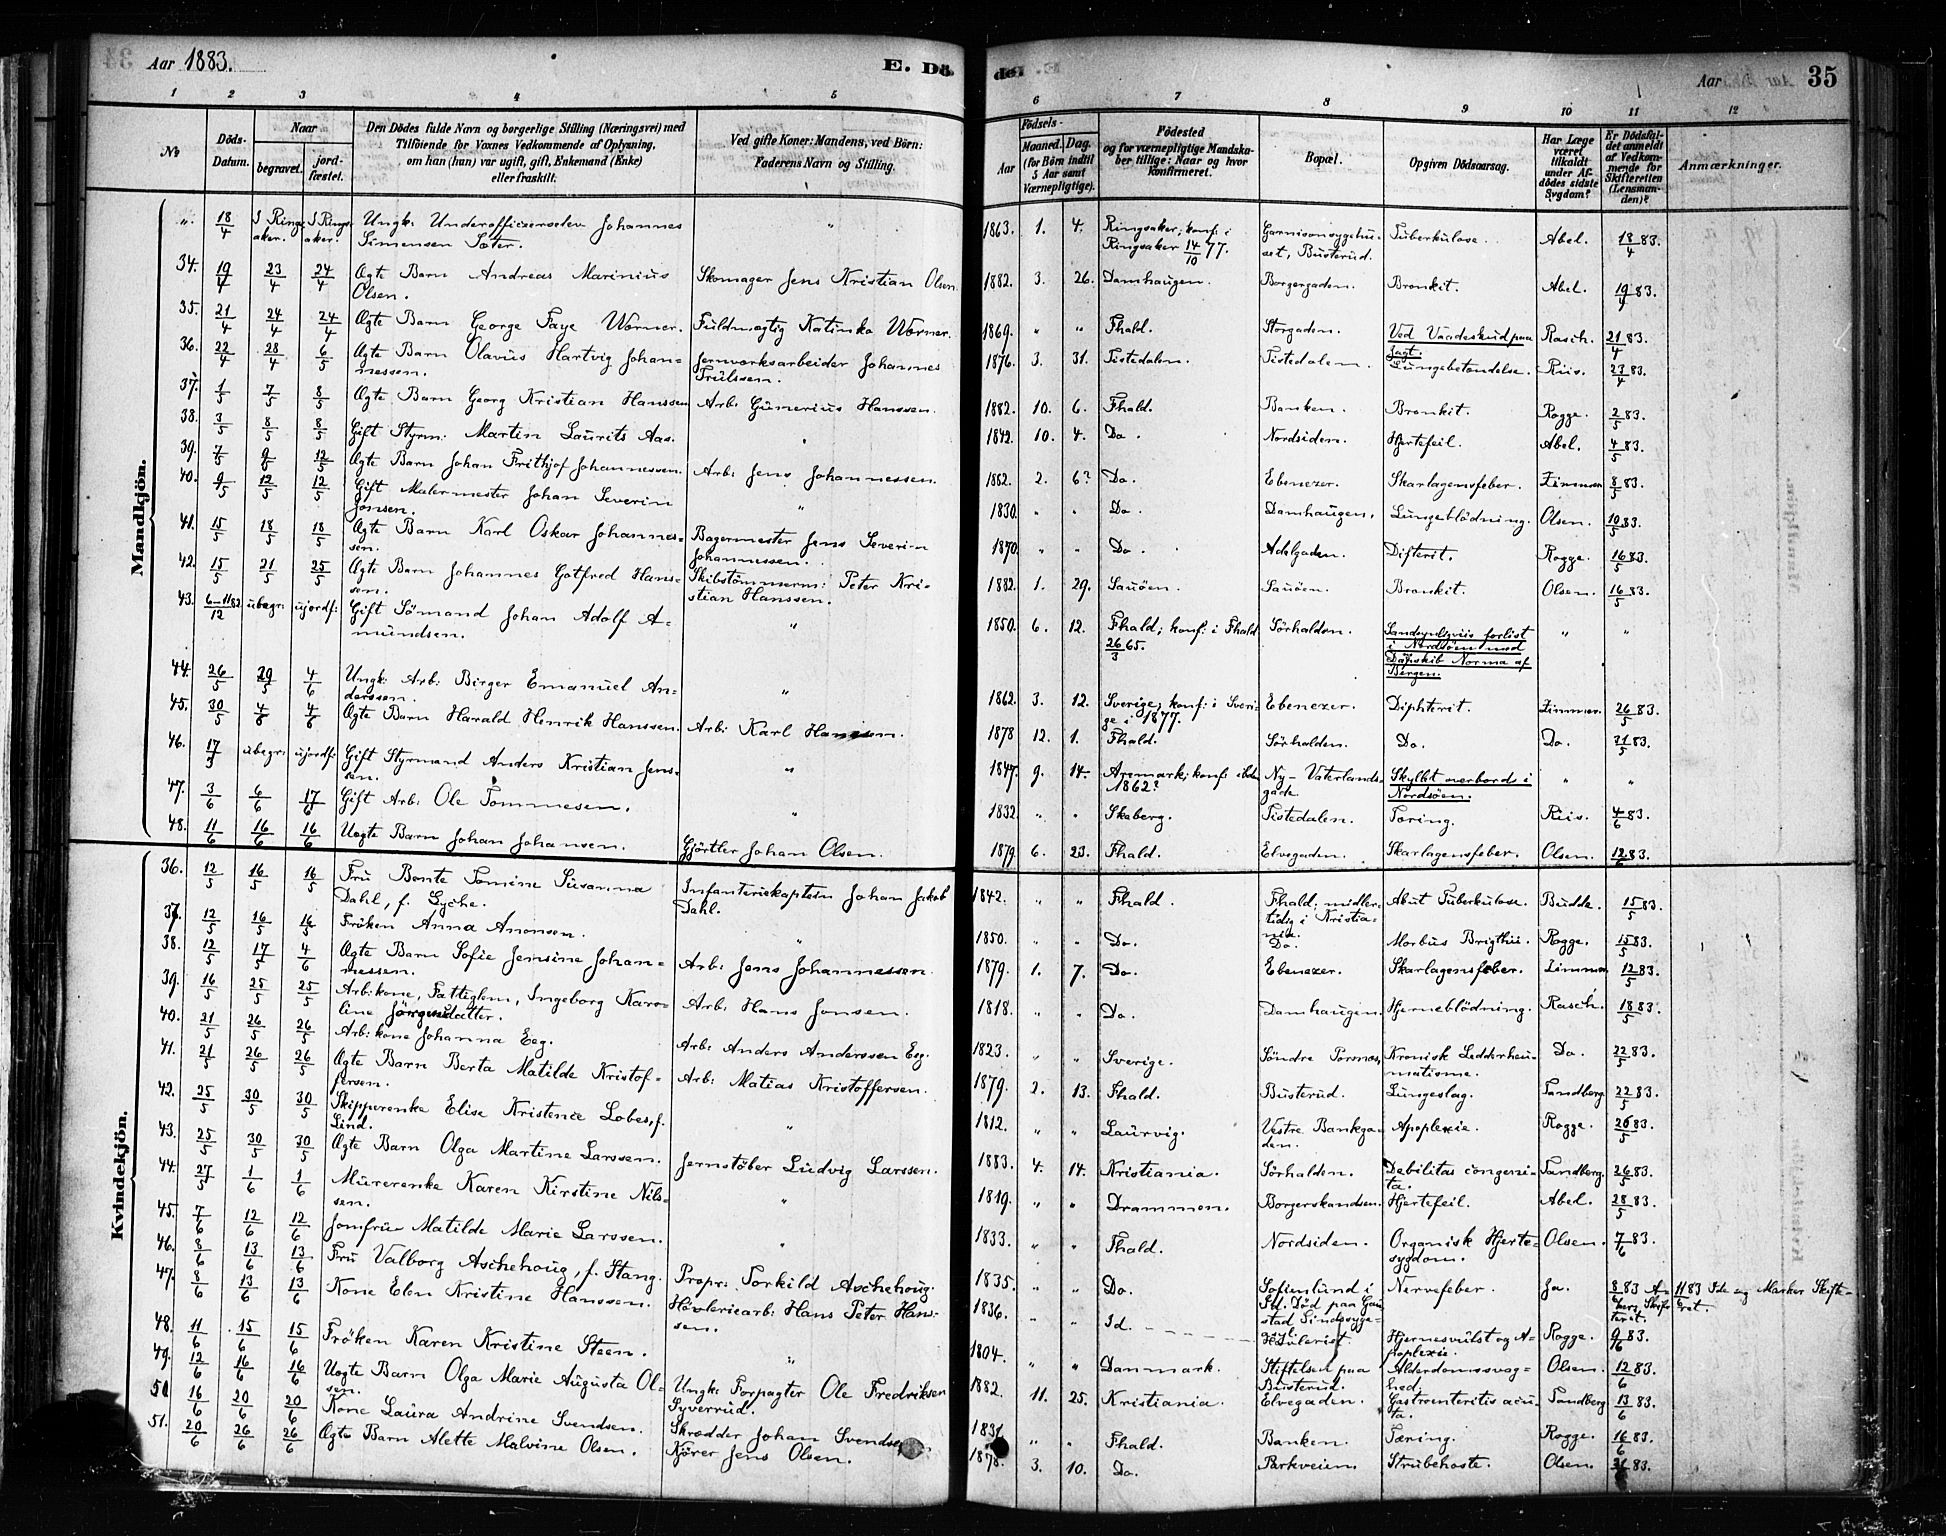 Aar 1883.
E. Dö-
1 2 3 4 5
No
Döds-Datum.
Naar
begravet.
jord-fæstet.
Den Dödes fulde Navn og borgerlige Stilling (Næringsvei) med
Tilföiende for Voxnes Vedkommende af Oplysning,
om han (hun) var ugift, gift, Enkemand (Enke)
eller fraskilt.
Ved gifte Koner: Mandens, ved Börn:
Faderens Navn og Stilling.
Mandkjön.
" 18/4 I Rings-aker. I Rings-aker. Ungk. Underofficerselev Johannes Simensen Sæter. "
34. 19/4 23/4 24/4 Ægte Barn Andreas Marinius Olsen. Skomager Jens Kristian Olsen.
35. 21/4 24/4 24/4 Ægte Barn George Faye Werner. Fuldmægtig Katinka Werner.
36. 22/4 28/4 6/5 Ægte Barn Olavus Hartvig Johannessen. Jernværksarbeider Johannes Trulssen.
37. 1/5 7/5 8/5 Ægte Barn Georg Kristian Hanssen Arb: Gunerius Hanssen.
38. 3/5 8/5 8/5 Gift Styrm: Martin Laurits Aas. "
39. 7/5 9/5 12/5 Ægte Barn Johan Frithjof Johannessen. Arb: Jens Johannessen.
40. 9/5 12/5 12/5 Gift Malermester Johan Severin Jonsen. "
41. 15/5 18/5 18/5 Ægte Barn Karl Oskar Johannessen. Bagermester Jens Severin Johannessen.
42. 15/5 21/5 25/5 Ægte Barn Johannes Gotfred Hanssen. Skibstömmerm: Peter Kristian Hanssen.
43. 6-11/12 82 ubegr: ujordf: Gift Sömand Johan Adolf Amundsen. "
44. 26/5 29/5 4/6 Ungk: Arb: Birger Emanuel Anderssen. "
45. 30/5 4/6 4/6 Ægte Barn Harald Henrik Hanssen. Arb: Karl Hanssen.
46. 17/3 ubegr: ujordf: Gift Styrmand Anders Kristian Jenssen. "
47. 3/6 6/6 17/6 Gift Arb: Ole Tommesen. "
48. 11/6 16/6 16/6 Uægte Barn Johan Johansen. Gjörtler Johan Olsen.
Kvindekjön.
36. 12/5 16/5 16/5 Fru Bente Tomine Susanna Dahl, f. Lyche. Infanteriekaptein Johan Jakob Dahl.
37. 12/5 16/5 16/5 Fröken Anna Anonsen. "
38. 12/5 17/5 4/6 Ægte Barn Sofie Jensine Johannessen. Arb: Jens Johannessen.
39. 16/5 25/5 25/5 Arb:kone, Fattiglem, Ingeborg Karoline Jörgensdatter. Arb: Hans Jonsen.
40. 21/5 26/5 26/5 Arb:kone Johanna Eeg. Arb: Anders Anderssen Eeg.
41. 21/5 26/5 26/5 Ægte Barn Berta Matilde Kristoffersen. Arb: Matias Kristoffersen.
42. 25/5 30/5 30/5 Skipperenke Elise Kristence Lobes, f. Lind. "
43. 25/5 30/5 30/5 Ægte Barn Olga Martine Larssen. Jernstöber Ludvig Larssen.
44. 27/5 1/6 1/6 Murerenke Karen Kirstine Nilssen. "
45. 7/6 12/6 12/6 Jomfru Matilde Marie Larssen. "
46. 8/6 13/6 13/6 Fru Valborg Aschehoug, f. Stang. Propr: Torkild Aschehoug.
47. 8/6 13/6 13/6 Kone Elen Kristine Hanssen. Hövleriearb: Hans Peter Hanssen.
48. 11/6 15/6 15/6 Fröken Karen Kristine Steen. "
49. 12/6 16/6 16/6 Uægte Barn Olga Marie Augusta Olsen. Ungk: Forpagter Ole Fredriksen Syverrud.
50 16/6 20/6 20/6 Kone Laura Andrine Svendsen. Skrædder Johan Svendsen
51. 20/6 26/6 26/6 Ægte Barn Alette Malvine Olsen. Kjörer Jens Olsen.
de!
Aar 35
6 7 8 9 10 11 12
Födsels-
Aar
Maaned. Dag.
(for Börn indtil
5 Aar samt
Værnepligtige).
Födested
og for værnepligtige Mandska-
ber tillige: Naar og hvor
konfirmeret.
Bopæl.
Opgiven Dödsaarsag.
Har Læge
været
tilkaldt
under Af-
dödes sidste
Sygdom?
Er Dödsfal-
det anmeldt
af Vedkom-
mende for
Skifteretten
(Lensman-
den)?
Anmærkninger.
1863. 1. 4. Ringsaker; konf: i Ringsaker 14/10 77. Garnisonssygehuset, Busterud. Tuberkulose. Abel. 18/4 83.
1882. 3. 26. Damhaugen. Borgergaden. Bronkit. Abel. 19/4 83.
1869. " " Fhald. Storgaden. Ved Vaadeskud paa Jagt. Rasch. 21/4 83.
1876. 3. 31. Tistedalen. Tistedalen. Lungebetændelse. Riis. 23/4 83.
1882. 10. 6. Fhald. Banken. Bronkit. Rogge. 2/5 83.
1842. 10. 4. Do. Nordsiden. Hjertefeil. Abel. 4/5 83.
1882. 2. 6? Do. Ebenezer. Skarlagensfeber. Zimmer 8/5 83.
1830. " " Do. Damhaugen. Lungeblödning. Olsen. 10/5 83.
1870. " " Do. Adelgaden. Difterit. Rogge. 16/5 83.
1882. 1. 29. Sauöen. Sauöen. Bronkit. Olsen. 16/5 83.
1850. 6. 12. Fhald; konf: i Fhald 26/3 65. Sörhalden. Sandsynligviis forlist i Nordsöen med Dampskib Norma af Bergen. " "
1862. 3. 12. Sverige; konf: i Sverige i 1877. Ebenezer. Diphterit. Zimmer. 26/5 83.
1878 12. 1. Fhald. Sörhalden. Do. Do. 31/5 83.
1847. 9. 14. Aremark; konf: 1862? Ny-Vaterlandsgade Skyllet overbord i Nordsöen. " "
1832. " " Skeberg. Tistedalen. Tæring. Riis. 4/6 83.
1879. 6. 23. Fhald. Elvegaden. Skarlagensfeber. Olsen. 12/6 83.
1842. " " Fhald. Fhald; midlertidig i Kristiania. Akut Tuberkulose. Budde. 15/5 83.
1850. " " Do. Do. Morbus Brigthii. Rogge. 15/5 83.
1879. 1. 7. Do. Ebenezer. Skarlagensfeber. Zimmer 12/5 83.
1818. " " Do. Damhaugen. Hjerneblödning. Rasch. 18/5 83.
1823. " " Sverige. Söndre Torsnes, Kronisk Ledderheumatisme. Do. 22/5 83.
1879. 2. 13. Fhald. Busterud. Lungeslag. Sandberg. 22/5 83.
1812. " " Laurvig. Vestre Bankgaden. Apoplexie. Rogge. 26/5 83.
1883. 4. 14. Kristiania. Sörhalden. Debilitas congenita. Sandberg. 26/5 83.
1819. " " Drammen. Borgerskandsen. Hjertefeil. Abel. 28/5 83.
1833. " " Fhald. Nordsiden. Organisk Hjertesygdom. Olsen. 7/6 83.
1835. " " Do. Sofienlund i Id. Död paa Gaustad Sindssyge- Nervefeber. Ja. 8/6 83 11/6 83 Ide og Marker Skifteret.
1836. Id. Höileriet Hjernesvulst og Apoplexie. Rogge. 9/6 83.
1804. " " Danmark. Stiftelsen paa Busterud. Alderdomssvaghed. Olsen. 12/6 83.
1882. 11. 25. Kristiania. Elvegaden. Gastroenteritis acuta. Sandberg 13/6 83.
1831 " " Fhald. Banken. Tæring. Rogge. 16/6 83.
1878. 3. 10. Do. Parkveien. Strubehoste. Olsen. 21/6 83.